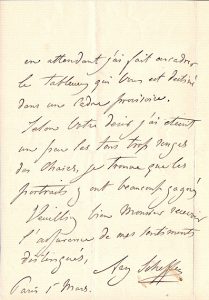 en attendant j'ai fait encadrer
le tableau qui vous est destiné
dans un cadre provisoire.
Selon votre désir j'ai éteint
un peu les tons trop rouges
des chairs, je trouve que les
portraits y ont beaucoup gagné
Veuillez bien Monsieur recevoir
l'assurance de mes sentiments
distingués,
Ary Scheffer
Paris 5 Mars.